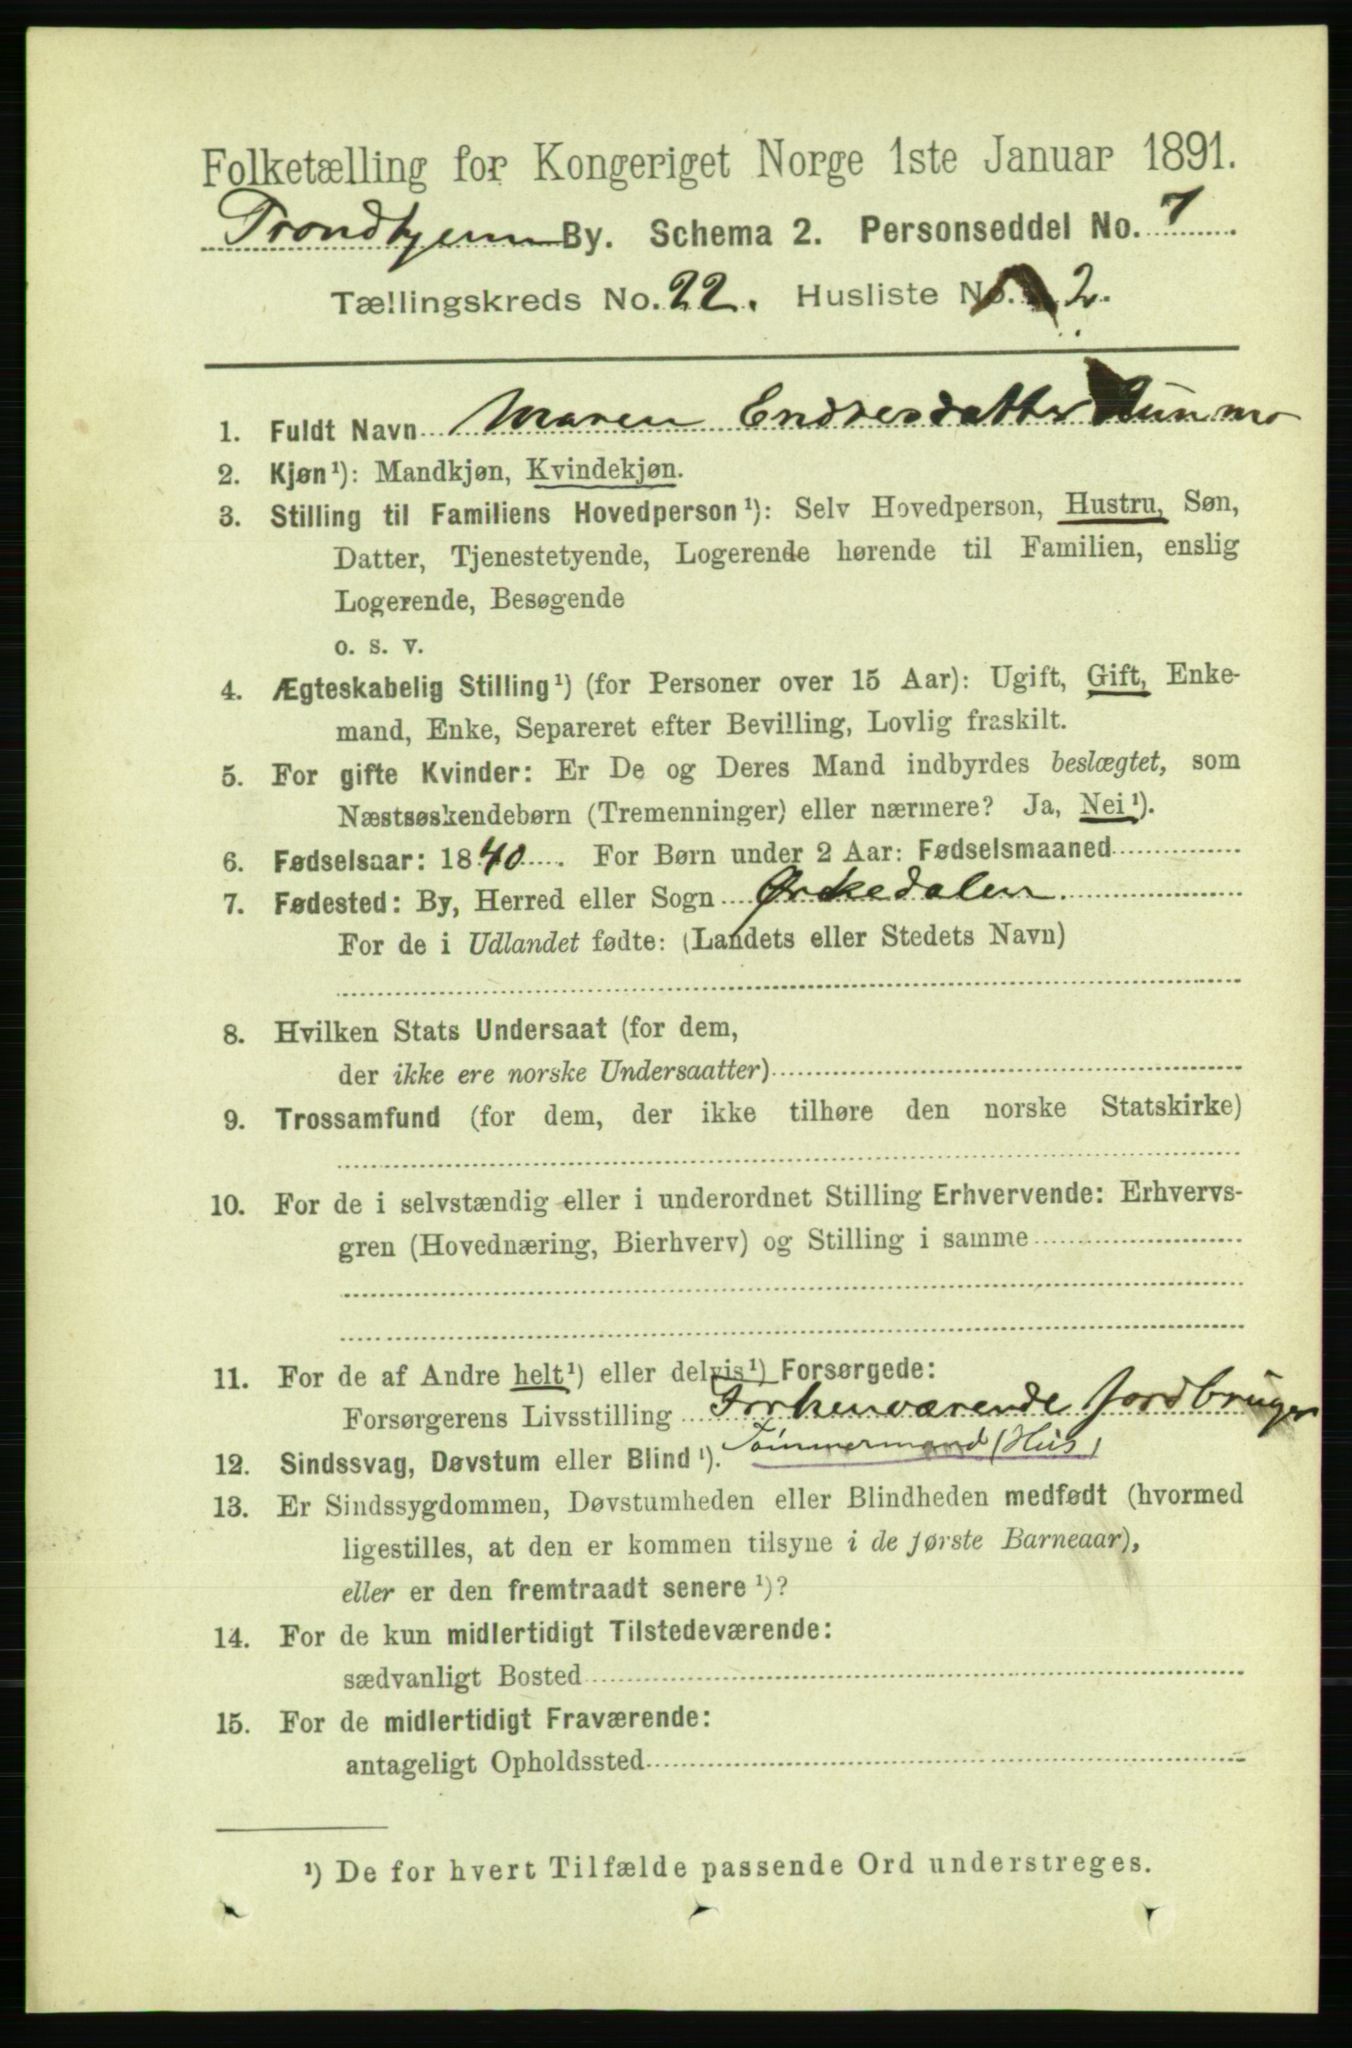 Folketælling for Kongeriget Norge 1ste Januar 1891.
Trondhjem By. Schema 2. Personseddel No. 7
Tællingskreds No. 22. Husliste No. 2.
1. Fuldt Navn Maren Endresdatter
2. Kjøn¹): Mandkjøn, Kvindekjøn.
3. Stilling til Familiens Hovedperson¹): Selv Hovedperson, Hustru, Søn,
Datter, Tjenestetyende, Logerende hørende til Familien, enslig
Logerende, Besøgende
o. s. v.
4. Ægteskabelig Stilling¹) (for Personer over 15 Aar): Ugift, Gift, Enke-
mand, Enke, Separeret efter Bevilling, Lovlig fraskilt.
5. For gifte Kvinder: Er De og Deres Mand indbyrdes beslægtet, som
Næstsøskendebørn (Tremenninger) eller nærmere? Ja, Nei¹).
6. Fødselsaar: 1840. For Børn under 2 Aar: Fødselsmaaned
7. Fødested: By, Herred eller Sogn Ørkedalen
For de i Udlandet fødte: (Landets eller Stedets Navn)
8. Hvilken Stats Undersaat (for dem,
der ikke ere norske Undersaatter)
9. Trossamfund (for dem, der ikke tilhøre den norske Statskirke)
10. For de i selvstændig eller i underordnet Stilling Erhvervende: Erhvervs-
gren (Hovednæring, Bierhverv) og Stilling i samme
11. For de af Andre helt¹) eller delvis¹) Forsørgede:
Forsørgerens Livsstilling Forhenværende Jordbruger
12. Sindssvag, Døvstum eller Blind¹). Tømmermand (Hus)
13. Er Sindssygdommen, Døvstumheden eller Blindheden medfødt (hvormed
ligestilles, at den er kommen tilsyne i de første Barneaar),
eller er den fremtraadt senere¹)?
14. For de kun midlertidigt Tilstedeværende:
sædvanligt Bosted
15. For de midlertidigt Fraværende:
antageligt Opholdssted
¹) De for hvert Tilfælde passende Ord understreges.